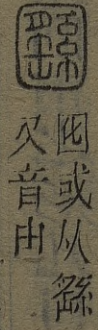 囮或从繇
又音由